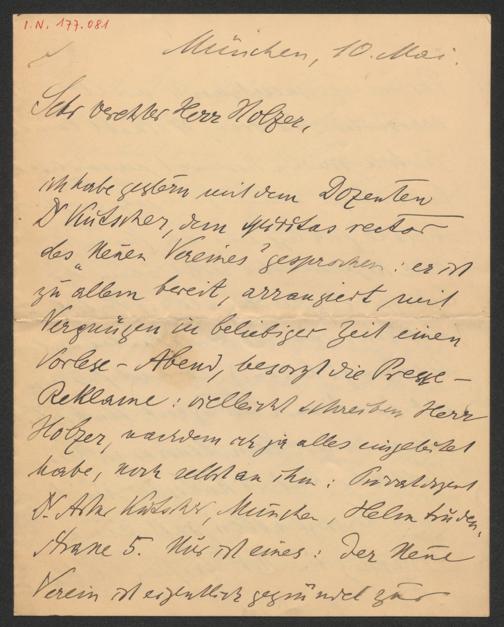 I.N. 177.081
München, 10. Mai.
Sehr verehrter Herr Holzer,
ich habe gestern mit dem Dozenten
Dr Kutscher, dem spiritus rector
des "Neuen Vereines" gesprochen: er ist
zu allem bereit, arrangiert mit
Vergnügen in beliebiger Zeit einen
Vorlese-Abend, besorgt die Presse-
Reklame: vielleicht schreiben Herr
Holzer, nachdem ich ja alles eingeleitet
habe, noch selbst an ihn: Privatdozent
Dr. Artur Kutscher, München, Helmtruden-
strasse 5. Nur ist eines: Der Neue
Verein ist eigentlich gegründet zur